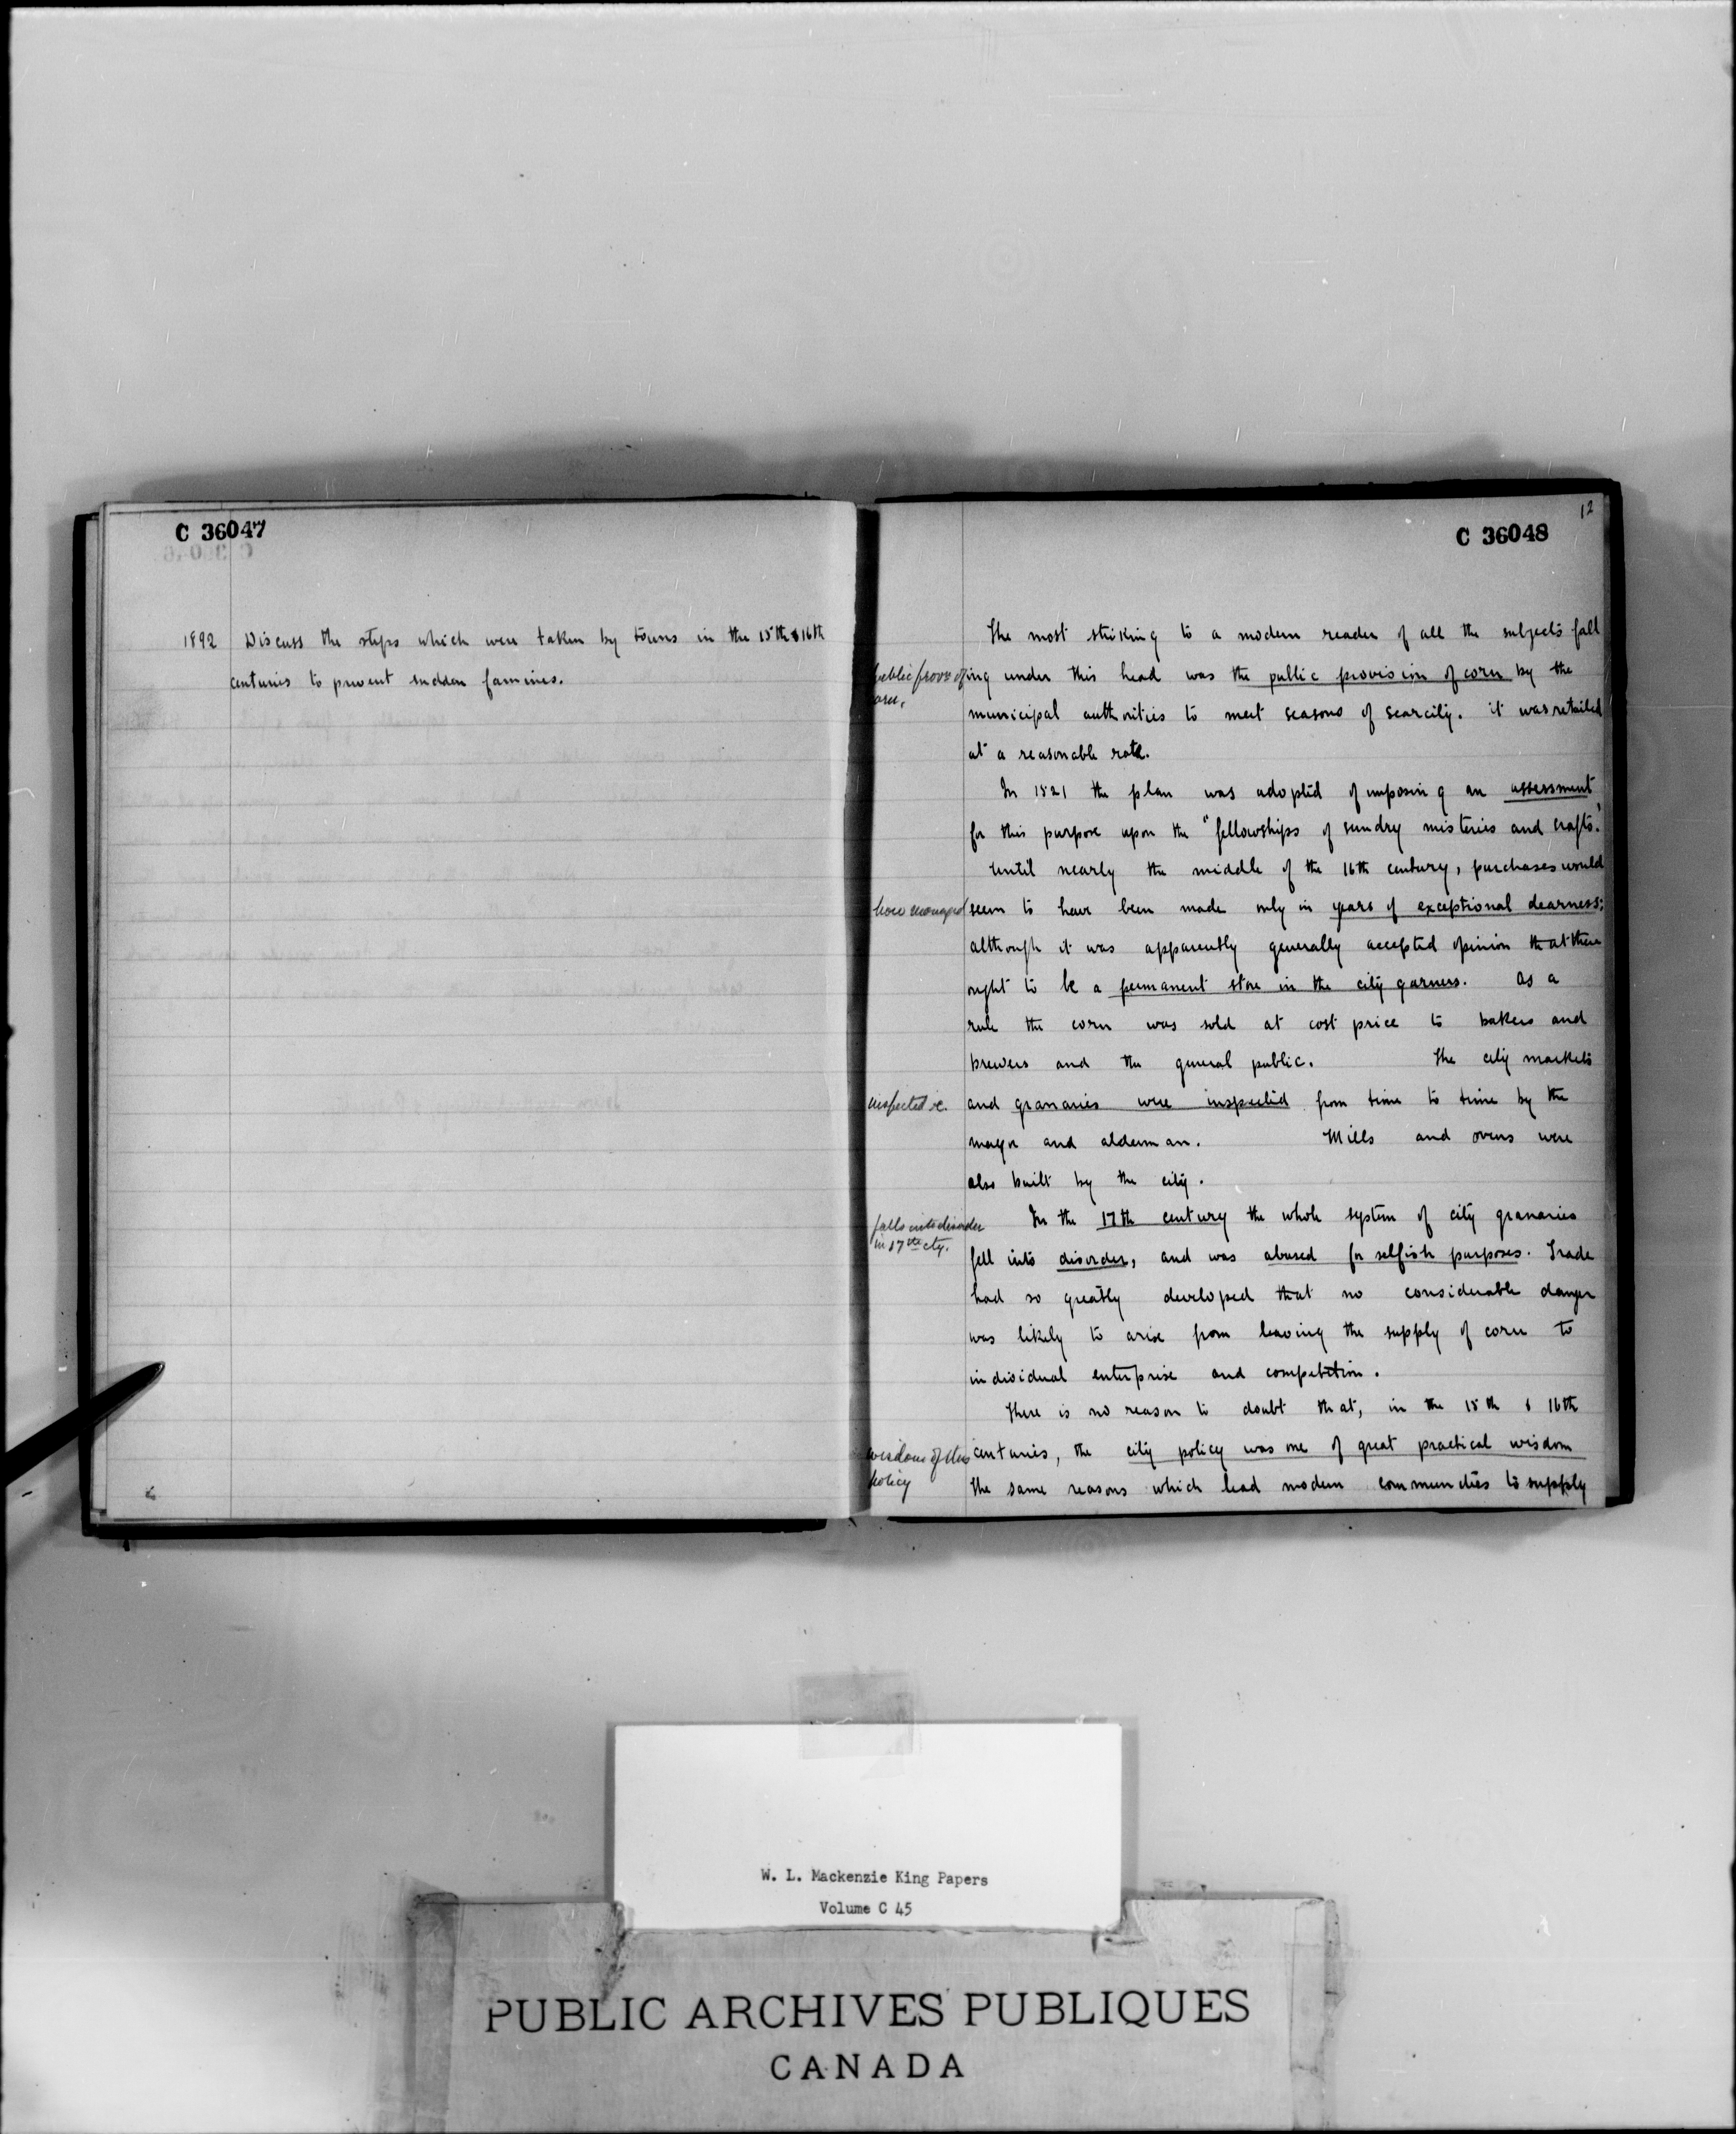 C 36047
1892 Discuss the steps which were taken by towns in the 15th & 16th
centuries to prevent sudden famines.
12
C 36048
The most striking to a modern reader of all the subjects fall
public prov. of
corn.
ing under this head was the public provision of corn by the
municipal authorities to meet seasons of scarcity. it was retailed
at a reasonable rate.
In 1521 the plan was adopted of imposing an assessment
for this purpose upon the "fellowships of sundry misteries and crafts."
Until nearly the middle of the 16th century, purchases would
how managed
seem to have been made only in years of exceptional dearness;
although it was apparently generally accepted opinion that there
ought to be a permanent store in the city garners. As a
rule the corn was sold at cost price to bakers and
brewers and the general public. The city markets
inspected &c.
and granaries were inspected from time to time by the
mayor and alderman. Mills and ovens were
also built by the city.
falls into disorder
in 17th cty.
In the 17th century the whole system of city granaries
fell into disorder, and was abused for selfish purposes. Trade
had so greatly developed that no considerable danger
was likely to arise from leaving the supply of corn to
individual enterprise and competition.
There is no reason to doubt that, in the 15th & 16th
wisdom of this
policy
centuries, the city policy was one of great practical wisdom
The same reasons which lead modern communities to supply
W. L. Mackenzie King Papers
Volume C 45
PUBLIC ARCHIVES PUBLIQUES
CANADA